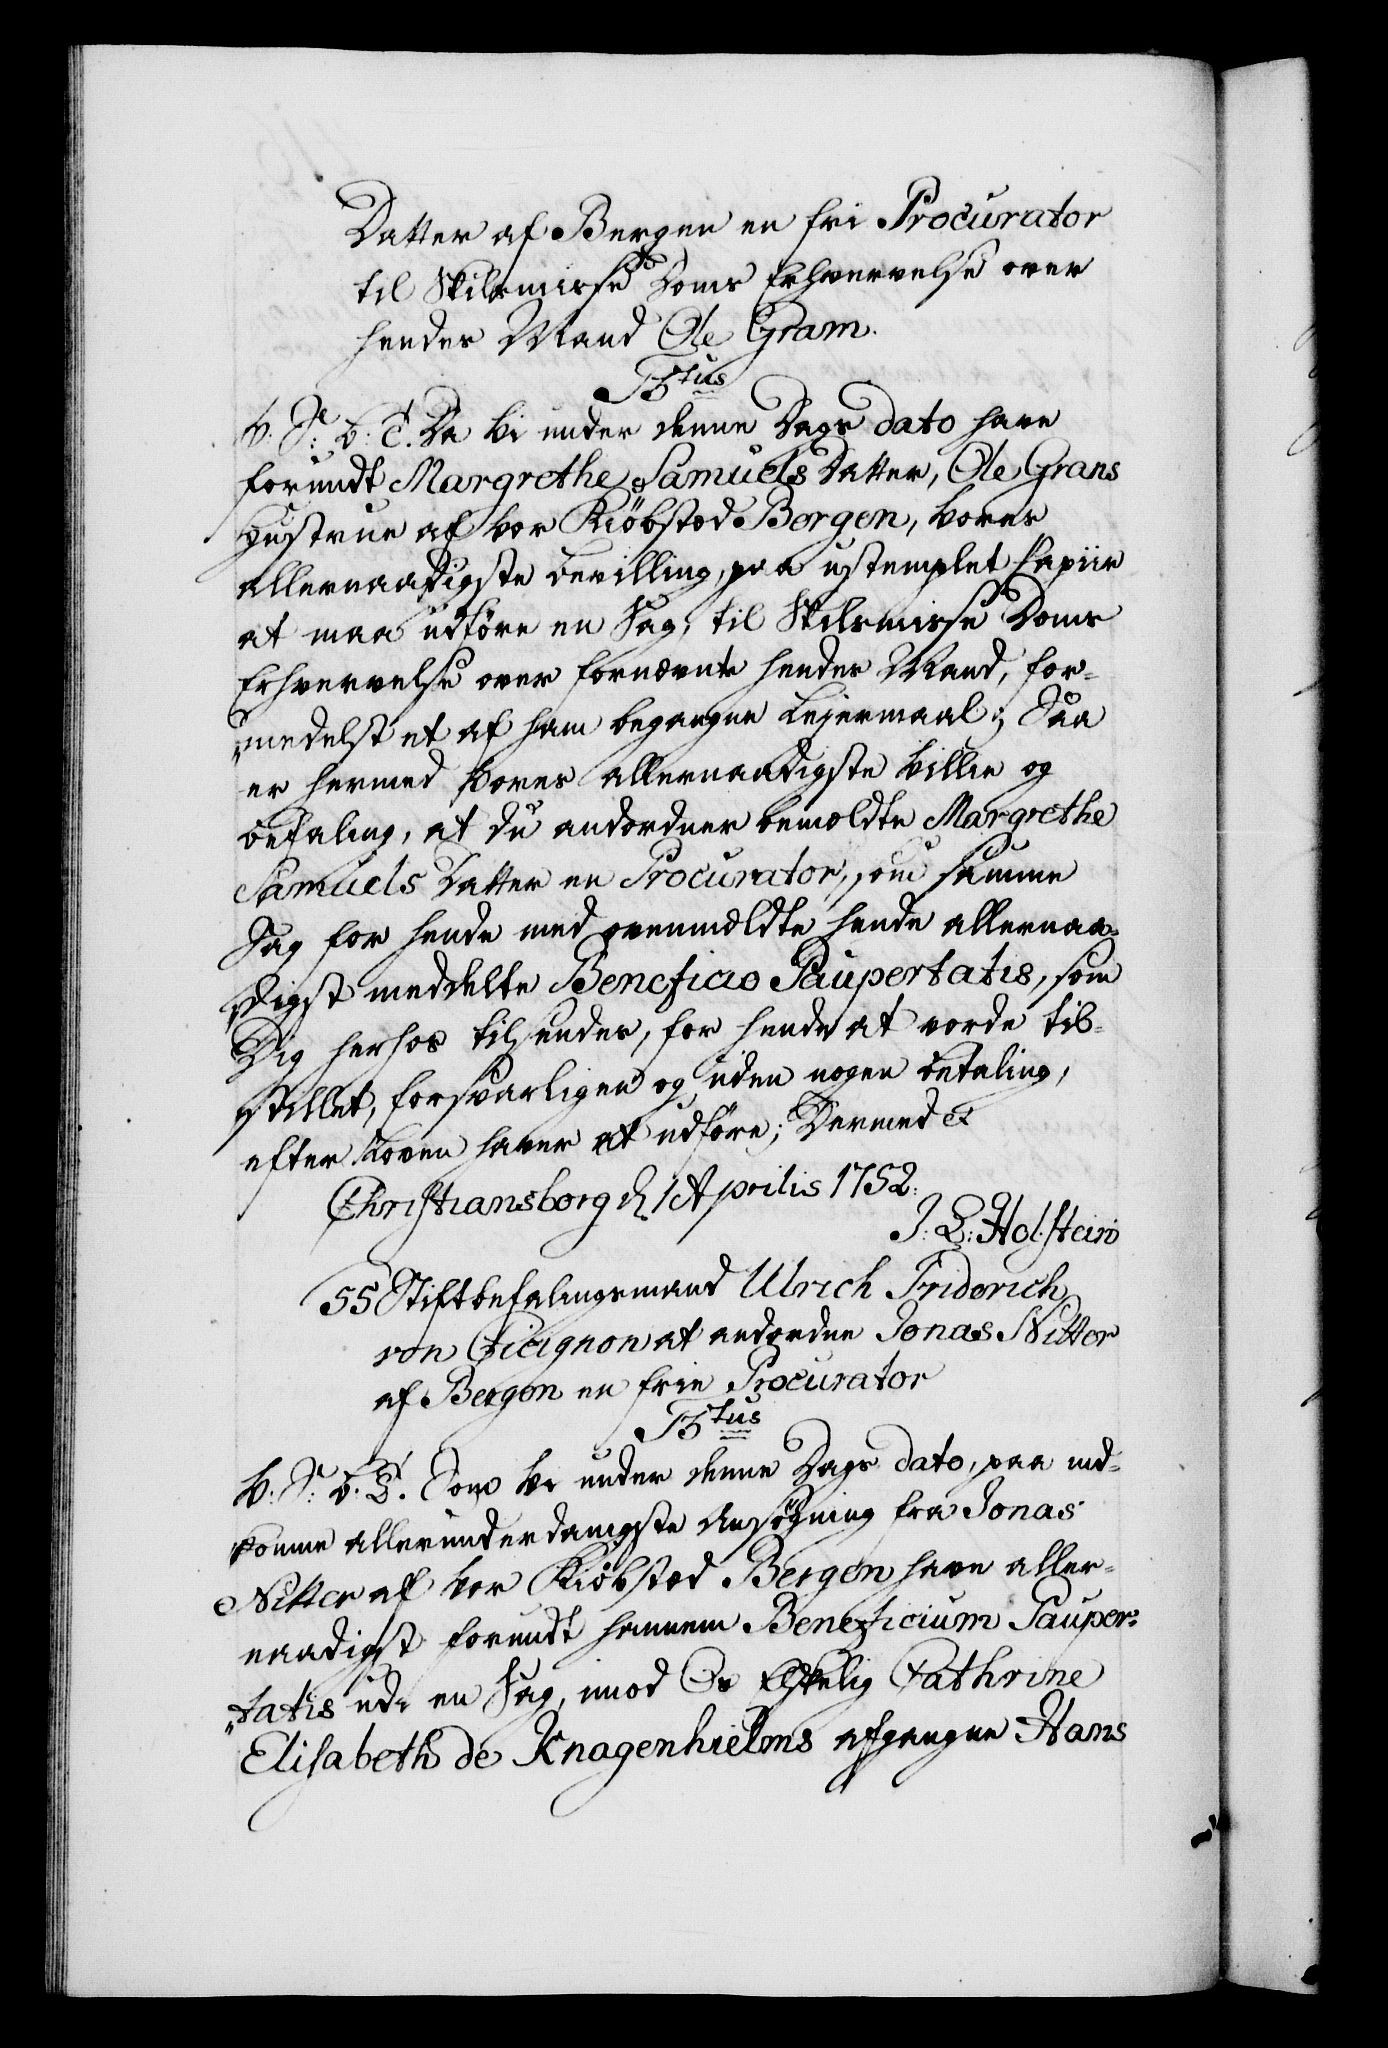 Datter af Bergen en fri Procurator
til Skilsmisse Doms Erhvervelse over
hendes Mand Ole Gram.
Fr. 5tus
V. S: B: T. Da Vi under denne Dags dato have
forundt Margrethe Samuels Datter, Ole Grans
Hustrue af vor Kiöbsted Bergen, vores
allernaadigste bevilling, paa ustemplet Papiir
at maa udföre en Sag, til Skilsmisse Doms
Erhvervelse over fornævnte hendes Mand, for-
„medelst et af ham begangne Lejermaal; Saa
er hermed Vores allernaadigste Villie og
befaling, at du andordner bemeldte Margrethe
Samuels Datter en Procurator, som samme
Sag for hende med ovenmeldte hende allernaa-
digst meddelte Beneficio Paupertatis, som
Dig herhos tilsendes, for hende at vorde til-
stillet, forsvarligen og uden nogen betaling,
efter Loven haver at udföre; Dermed &
Christiansborg d. 1 Aprilis 1752.
J: L: Holstein
55 Stiftbefalingsmand Ulrich Friderich
von Cicignon at andordne Jonas Nitter
af Bergen en frie Procurator
V: S: B: T. Som Vi under denne Dags dato, paa ind-
komne allerunderdanigste Ansögning fra Jonas
Nitter af vor Kiöbsted Bergen have aller-
naadigst forundt hannem Beneficium Pauper-
„tatis udi en Sag, imod Os Elskelig Cathrine
Elisabeth de Knagenhielms afgangne Hans